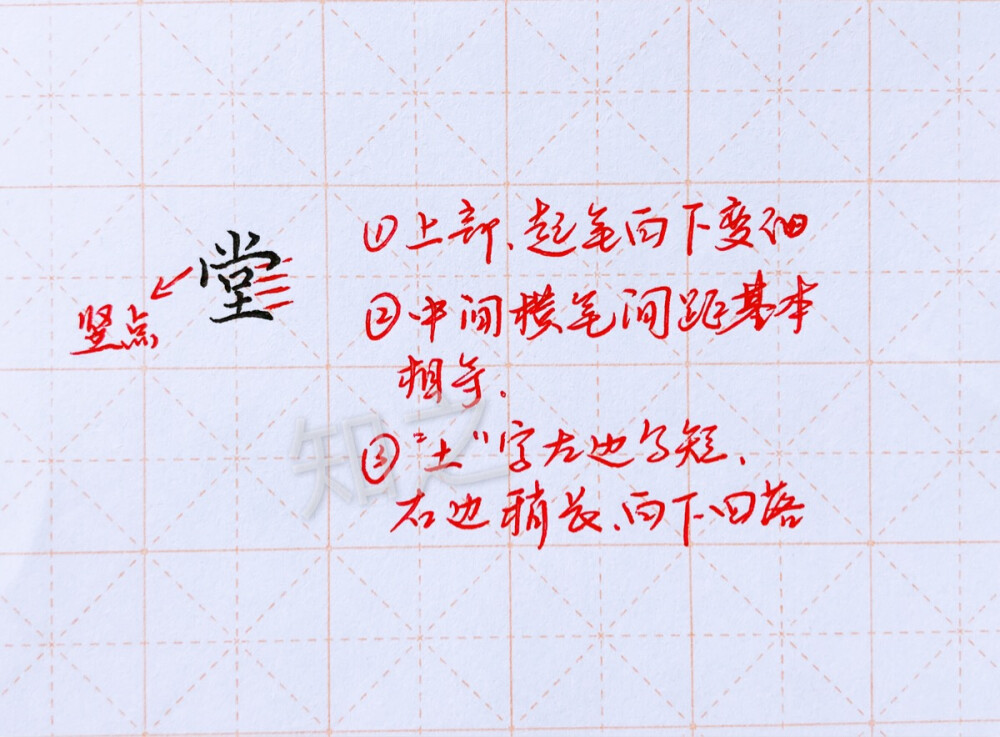 堂
竖点
①上部、起笔向下变细
②中间横笔间距基本
相等.
③"土"字左边写短、
右边稍长、向下回落
知之